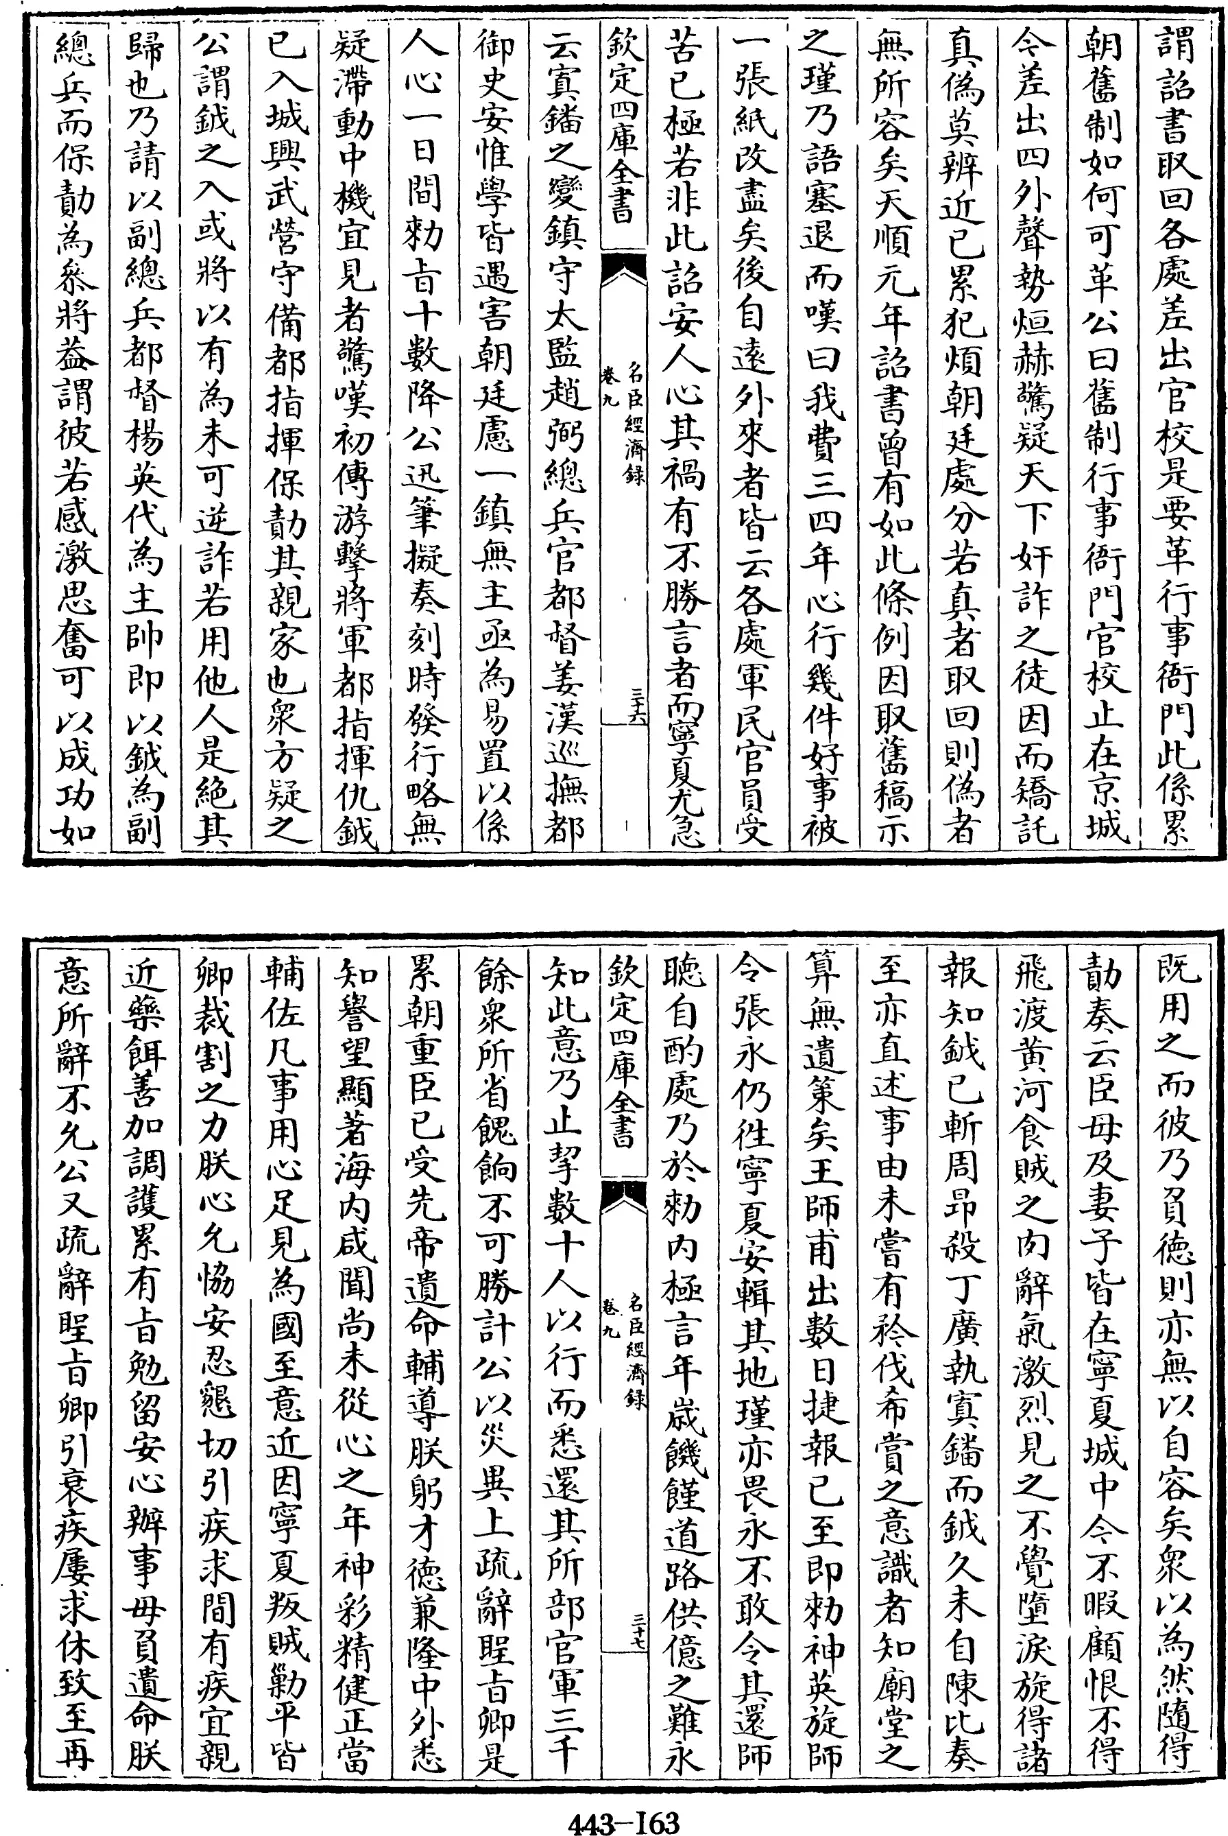 謂詔書取回各處差出官校是要革行事衙門此係累
朝舊制如何可革公曰舊制行事衙門官校止在京城
令差出四外聲勢烜赫驚疑天下奸詐之徒因而矯託
真偽莫辨近已累犯煩朝廷處分若真者取回則偽者
無所容矣天順元年詔書曾有如此條例因取舊稿示
之瑾乃語塞退而嘆曰我費三四年心行幾件好事被
一張紙改盡矣後自遠外來者皆云各處軍民官員受
苦已極若非此詔安人心其禍有不勝言者而寧夏尤急
欽定四庫全書
名臣經濟録
卷九
三十六
云寘鐇之變鎮守太監趙弼總兵官都督姜漢巡撫都
御史安惟學皆遇害朝廷慮一鎮無主亟為易置以係
人心一日間勅旨十數降公迅筆擬奏刻時發行略無
疑滯動中機宜見者驚嘆初傳游擊將軍都指揮仇鉞
已入城興武營守備都指揮保勛其親家也衆方疑之
公謂鉞之入或將以有為未可逆詐若用他人是絶其
歸也乃請以副總兵都督楊英代為主帥即以鉞為副
總兵而保勛為叅將葢謂彼若感激思奮可以成功如
既用之而彼乃負德則亦無以自容矣衆以為然隨得
勛奏云臣母及妻子皆在寧夏城中今不暇顧恨不得
飛渡黄河食賊之肉辭氣激烈見之不覺墮淚旋得諸
報知鉞已斬周昂殺丁廣執寘鐇而鉞久未自陳比奏
至亦直述事由未嘗有矜伐希賞之意識者知廟堂之
算無遺策矣王師甫出數日捷報已至即勅神英旋師
令張永仍徃寧夏安輯其地瑾亦畏永不敢令其還師
聴自酌處乃於勅内極言年歳饑饉道路供億之難永
欽定四庫全書
名臣經濟録
卷九
三十七
知此意乃止挈數十人以行而悉還其所部官軍三千
餘衆所省餽餉不可勝計公以災異上疏辭聖旨卿是
累朝重臣已受先帝遺命輔導朕躬才德兼隆中外悉
知譽望顯著海内咸聞尚未從心之年神彩精健正當
輔佐凡事用心足見為國至意近因寧夏叛賊勦平皆
卿裁割之力朕心允恊安忍懇切引疾求間有疾宜親
近藥餌善加調護累有旨勉留安心辦事毋負遺命朕
意所辭不允公又疏辭聖旨卿引衰疾屢求休致至再
443-163